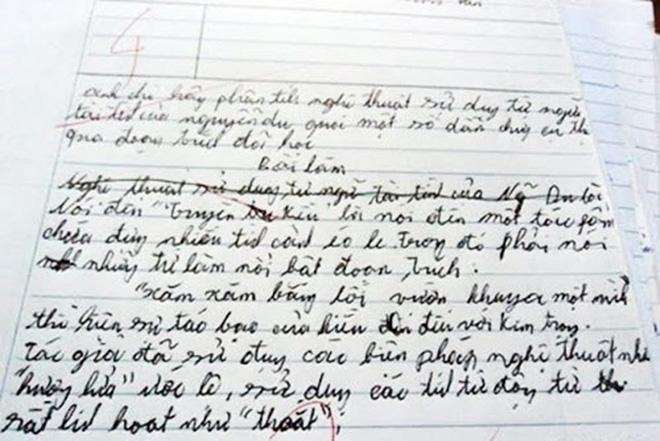 4
anh chị hãy phân tích nghệ thuật sử dụng từ ngữ
tài tình của nguyễn du, qua một số dẫn chứng cụ thể
qua đoạn trích đã học
Bài làm
Nghệ thuật sử dụng từ ngữ tài tình của Ng
Nói đến "Truyện kiều là nói đến một tác phẩm
chứa đựng nhiều tình cảnh éo le trong đó phải nói
những từ làm nổi bật đoạn trích.
"xăm xăm băng lối vườn khuya một mình
thể hiện sự táo bạo của kiều đến với kim trọng.
tác giả đã sử dụng các biện pháp nghệ thuật như
"hương lửa" ước lệ, sử dụng các tính từ động từ
rất linh hoạt như "thoắt",